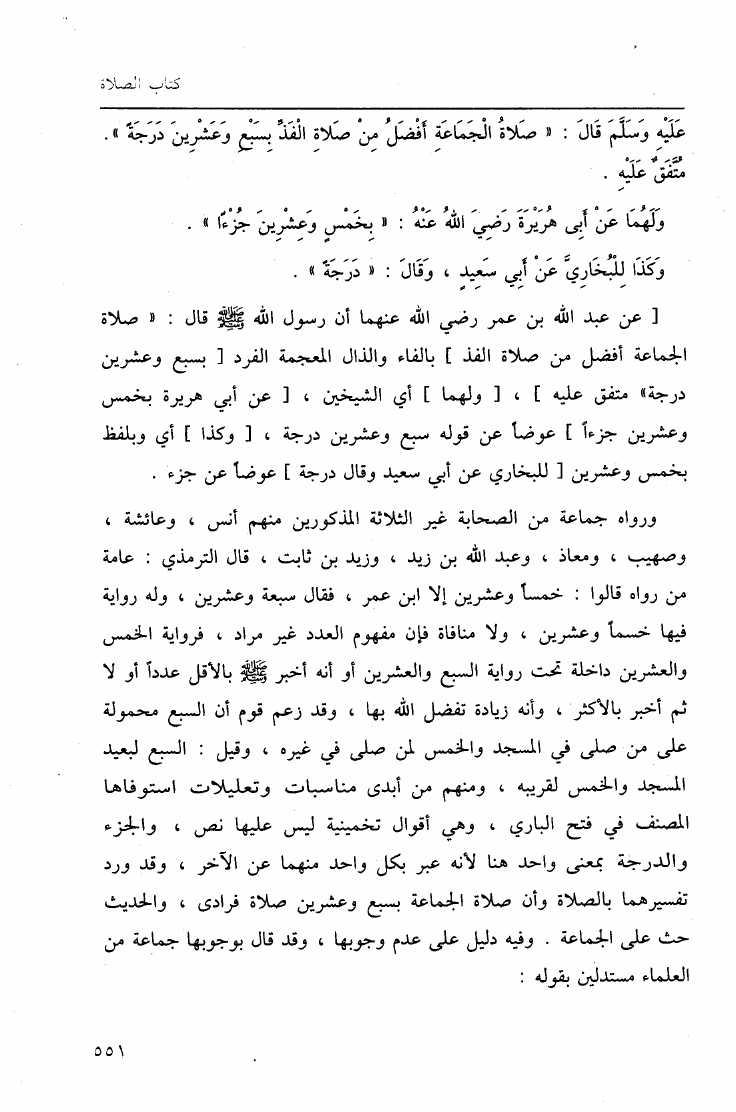 كتاب الصلاة
عَلَيْهِ وَسَلَّمَ قَالَ : « صَلَاةُ الْجَمَاعَةِ أَفْضَلُ مِنْ صَلَاةِ الْفَذِّ بِسَبْعٍ وَعَشْرِينَ دَرَجَةً » .
مُتَّفَقٌ عَلَيْهِ .
وَلَهُمَا عَنْ أَبِى هُرَيْرَةَ رَضِيَ اللهُ عَنْهُ : « بِخَمْسٍ وَعِشْرِينَ جُزْءًا » .
وَكَذَا لِلْبُخَارِيِّ عَنْ أَبِي سَعِيدٍ ، وَقَالَ : « دَرَجَةً » .
[ عن عبد الله بن عمر رضي الله عنهما أن رسول الله ﷺ قال : « صلاة
الجماعة أفضل من صلاة الفذ ] بالفاء والذال المعجمة الفرد [ بسبع وعشرين
درجة» متفق عليه ] ، [ ولهما ] أي الشيخين ، [ عن أبي هريرة بخمس
وعشرين جزءاً ] عوضاً عن قوله سبع وعشرين درجة ، [ وكذا ] أي وبلفظ
بخمس وعشرين [ للبخاري عن أبي سعيد وقال درجة ] عوضاً عن جزء .
ورواه جماعة من الصحابة غير الثلاثة المذكورين منهم أنس ، وعائشة ،
وصهيب ، ومعاذ ، وعبد الله بن زيد ، وزيد بن ثابت ، قال الترمذي : عامة
من رواه قالوا : خمساً وعشرين إلا ابن عمر ، فقال سبعة وعشرين ، وله رواية
فيها خسماً وعشرين ، ولا منافاة فإن مفهوم العدد غير مراد ، فرواية الخمس
والعشرين داخلة تحت رواية السبع والعشرين أو أنه أخبر ﷺ بالأقل عدداً أو لا
ثم أخبر بالأكثر ، وأنه زيادة تفضل الله بها ، وقد زعم قوم أن السبع محمولة
على من صلى في المسجد والخمس لمن صلى في غيره ، وقيل : السبع لبعيد
المسجد والخمس لقريبه ، ومنهم من أبدى مناسبات وتعليلات استوفاها
المصنف في فتح الباري ، وهي أقوال تخمينية ليس عليها نص ، والجزء
والدرجة بمعنى واحد هنا لأنه عبر بكل واحد منهما عن الآخر ، وقد ورد
تفسيرهما بالصلاة وأن صلاة الجماعة بسبع وعشرين صلاة فرادى ، والحديث
حث على الجماعة . وفيه دليل على عدم وجوبها ، وقد قال بوجوبها جماعة من
العلماء مستدلين بقوله :
٥٥١